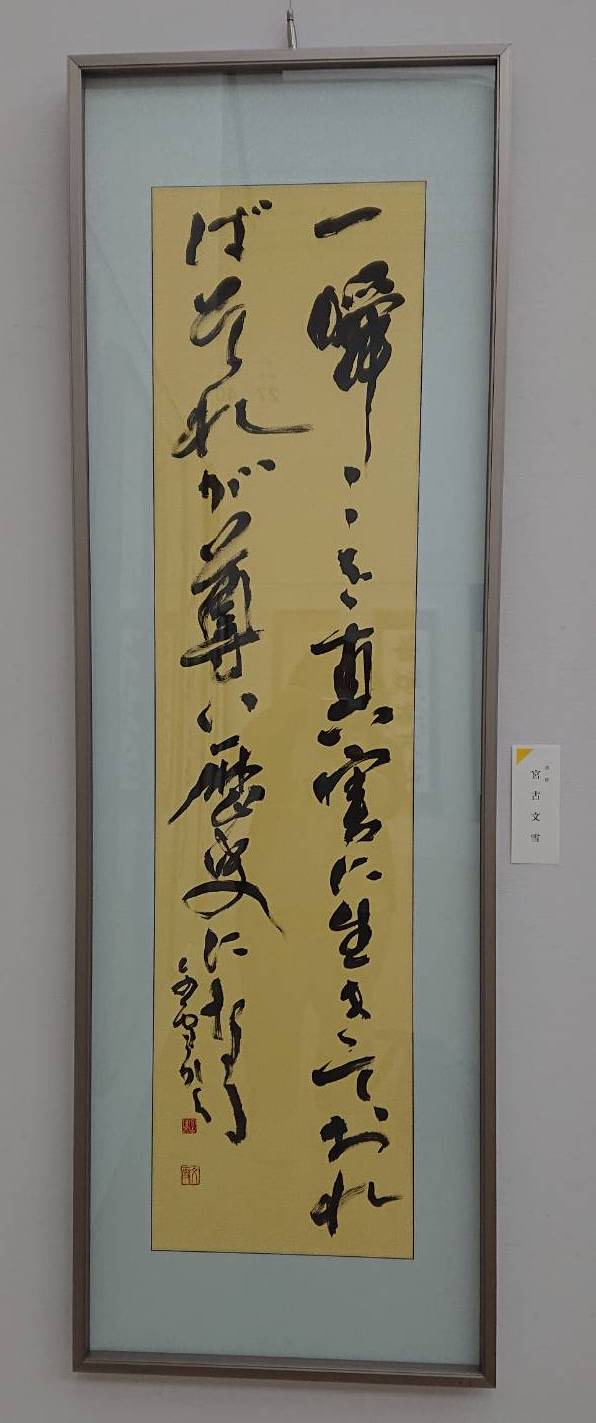 一瞬ここを真実に生きておれ
ばそれが尊い歴史になる
宮古文雪